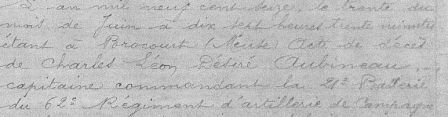 L'an mil neuf cent seize, le trente du
mois de Juin à dix sept heures trente minutes
étant à Brocourt (Meuse) Acte de décès
de Charles Léon Désiré Aubineau
capitaine commandant la 21e Batterie
du 62e Régiment d'artillerie de Campagne